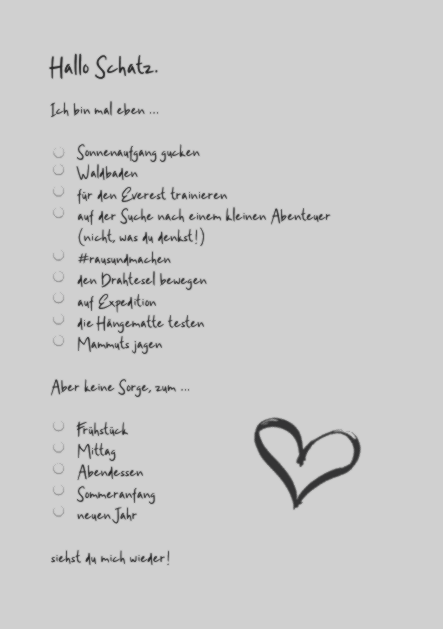 Hallo Schatz.
Ich bin mal eben ...
Sonnenaufgang gucken
Waldbaden
für den Everest trainieren
auf der Suche nach einem kleinen Abenteuer
(nicht, was du denkst!)
#rausundmachen
den Drahtesel bewegen
auf Expedition
die Hängematte testen
Mammuts jagen
Aber keine Sorge, zum ...
Frühstück
Mittag
Abendessen
Sommeranfang
neuen Jahr
siehst du mich wieder!